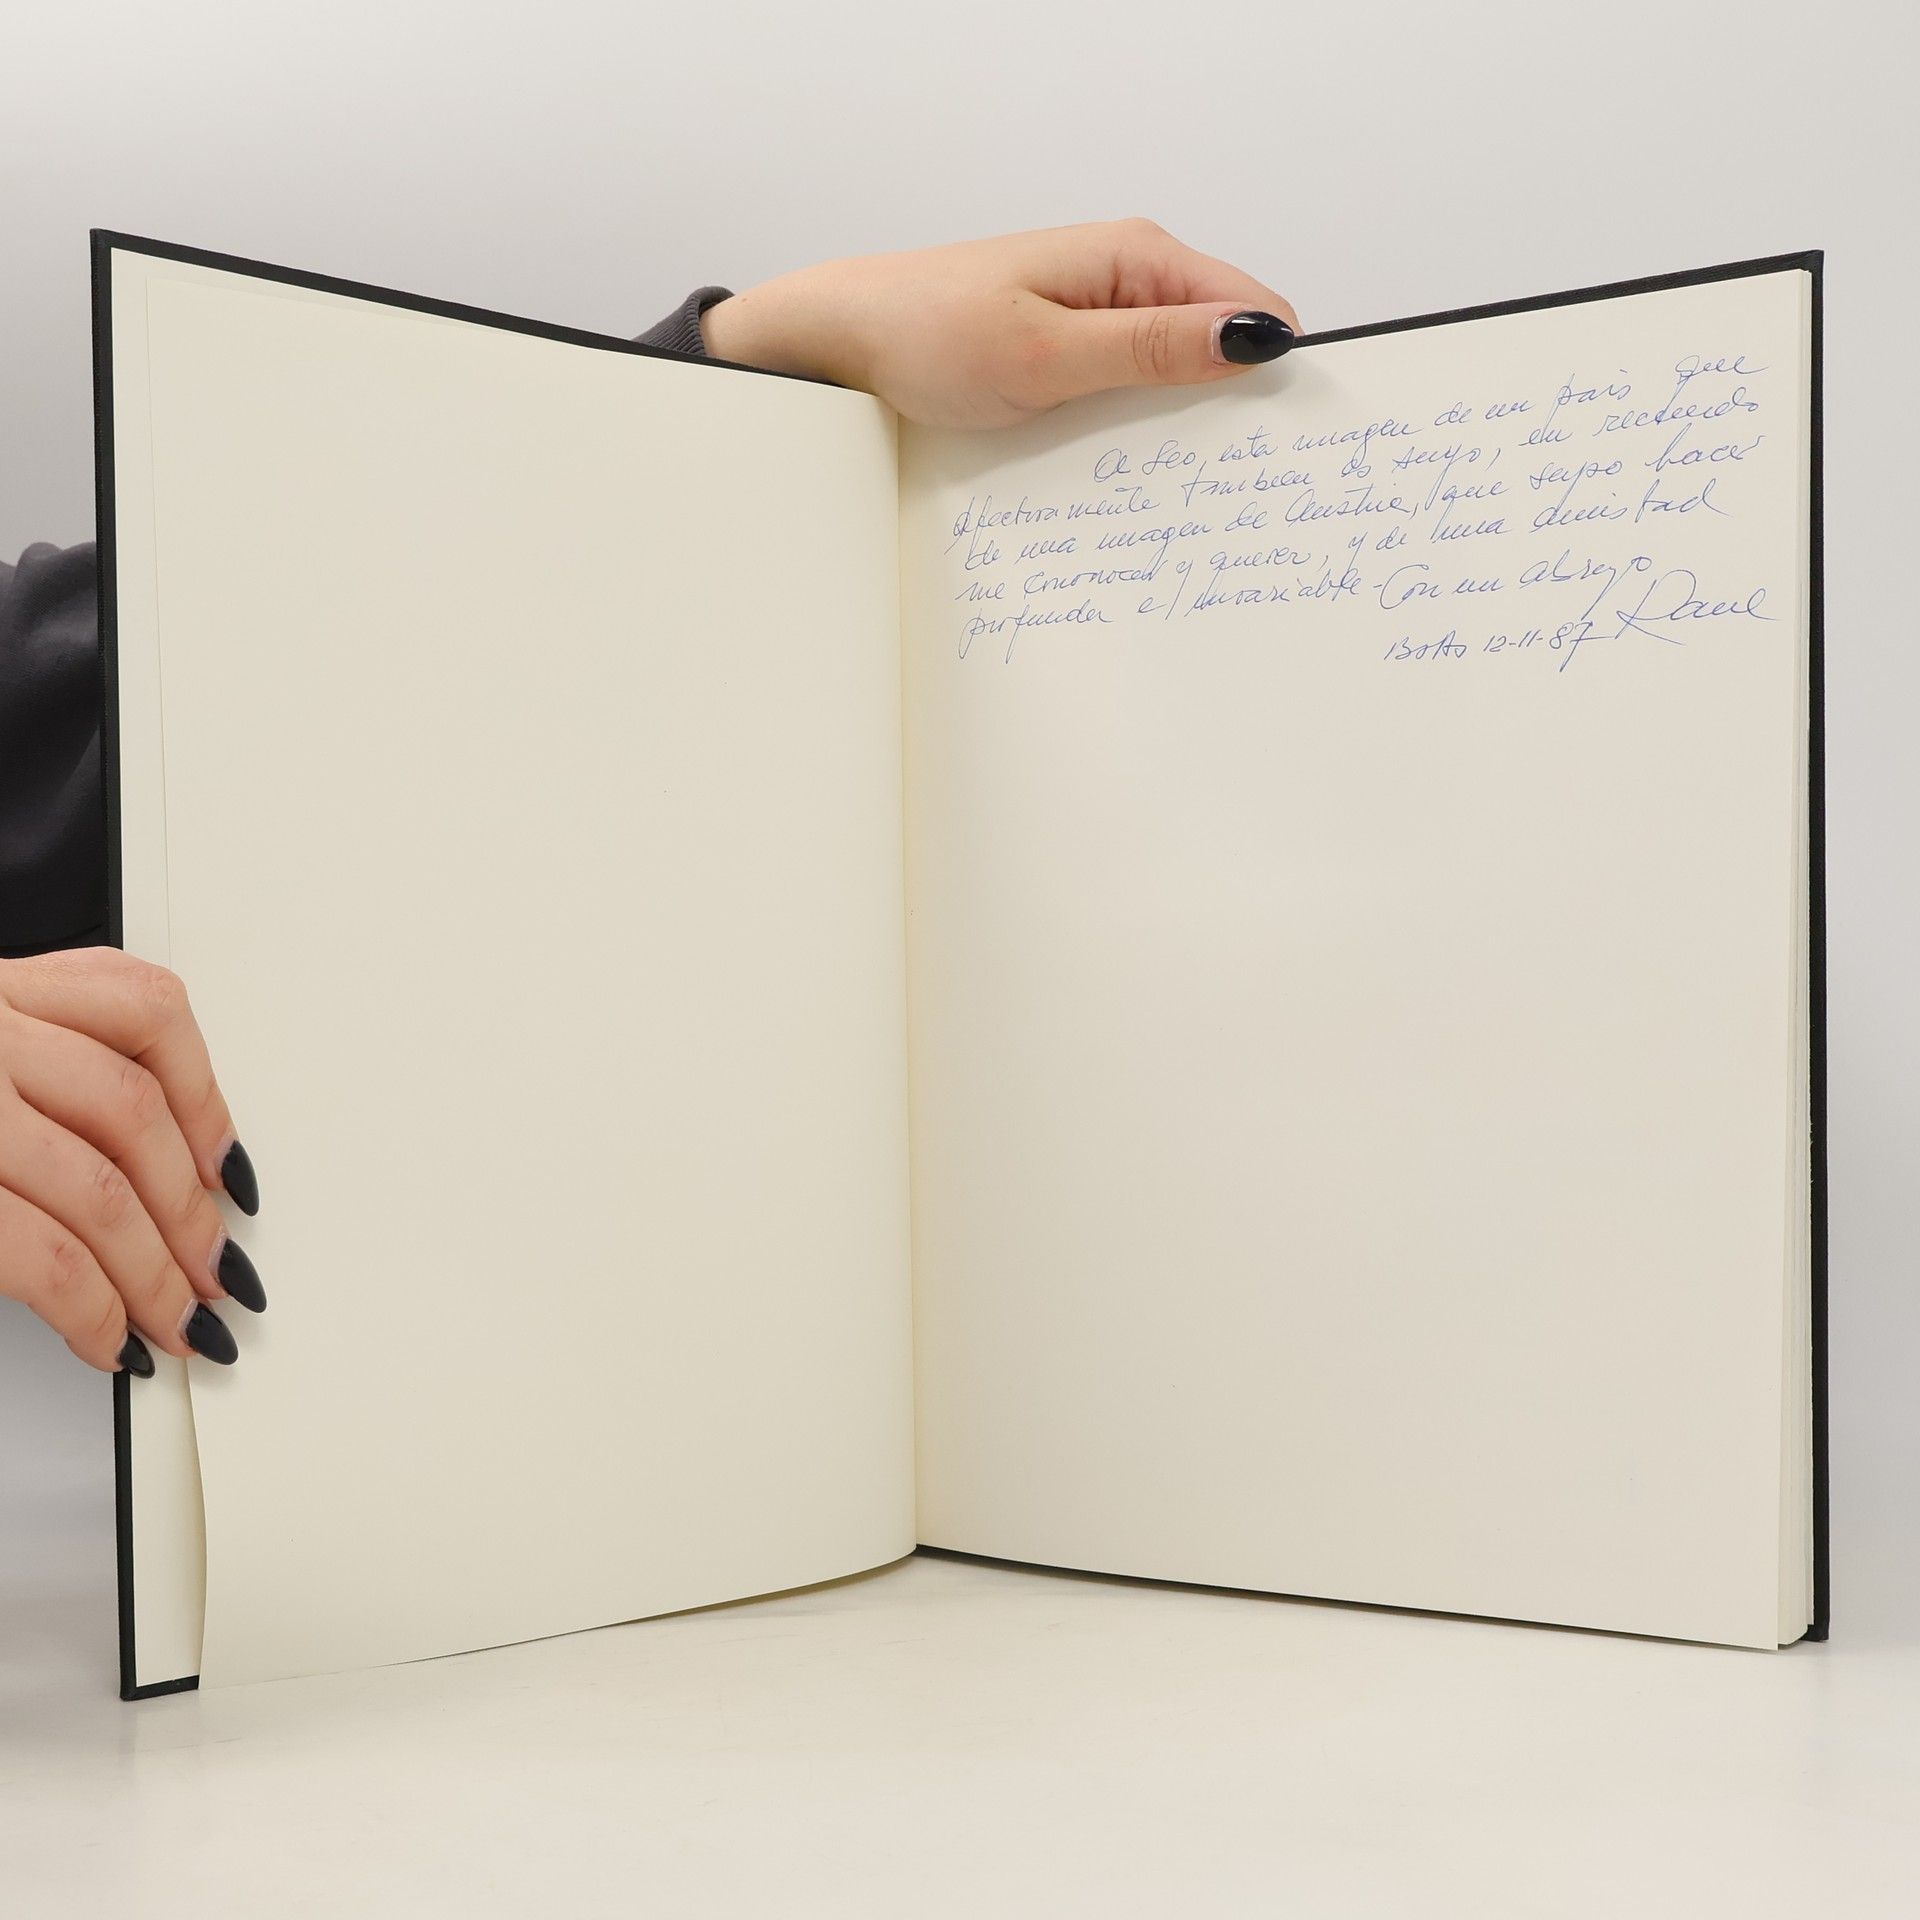 A Leo, esta imagen de un país que
efectivamente también es suyo, en recuerdo
de una imagen de Austria, que supo hacer
me cononocer y querer, y de una amistad
profunda e invariable - Con un abrazo
Raul
BsAs 12-11-87